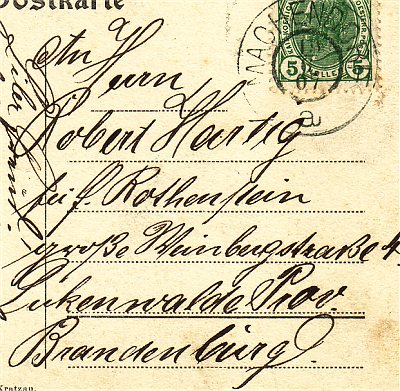 Postkarte
An Herrn
Robert Hartig
bei f. Rothenstein
große Weinbergstraße 4
Lukenwalde Prov.
Brandenburg.
MACHEND
5 HELLER 5
Kratzau.